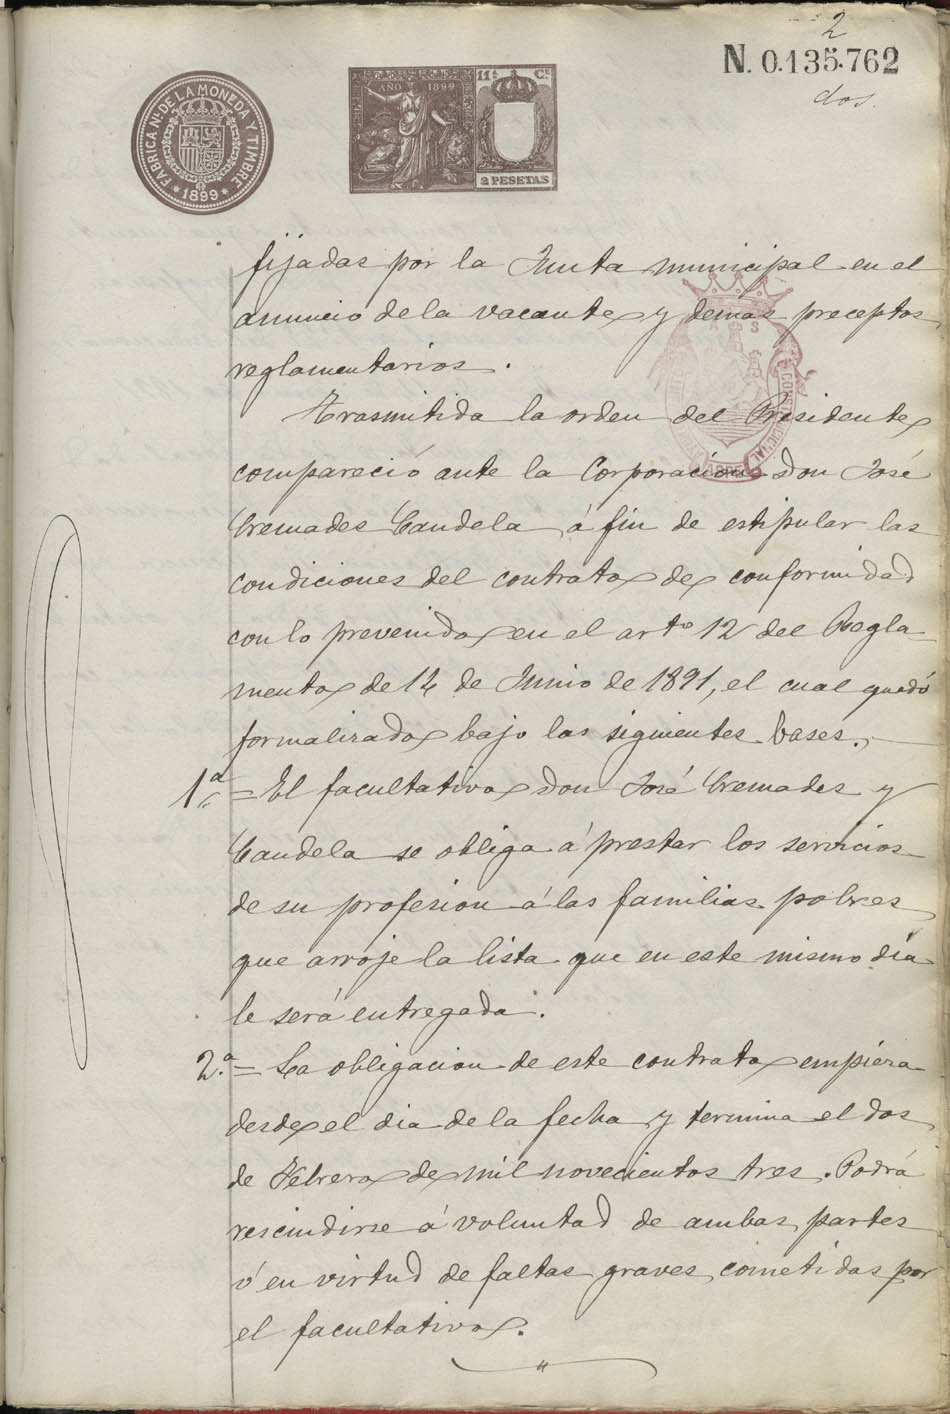 2
N. 0.135.762
dos.
FABRICA Nl. DE LA MONEDA Y TIMBRE
1899
AÑO 1899
11ª Cl.
2 PESETAS
fijadas por la Junta municipal en el
anuncio de la vacante y demas preceptos
reglamentarios.
Trasmitida la orden del Presidente
compareció ante la Corporacion don José
Cremades Candela á fin de estipular las
condiciones del contrato de conformidad
con lo prevenido en el arto 12 del Regla
mento de 14 de Junio de 1891, el cual quedó
formalizado bajo las siguientes bases.
1ª = El facultativo don José Cremades y
Candela se obliga á prestar los servicios
de su profesion á las familias pobres
que arroje la lista que en este mismo dia
le será entregada.
2.ª = La obligacion de este contrato empieza
desde el dia de la fecha y termina el dos
de Febrero de mil novecientos tres. Podrá
rescindirse á voluntad de ambas partes
ó en virtud de faltas graves cometidas por
el facultativo.